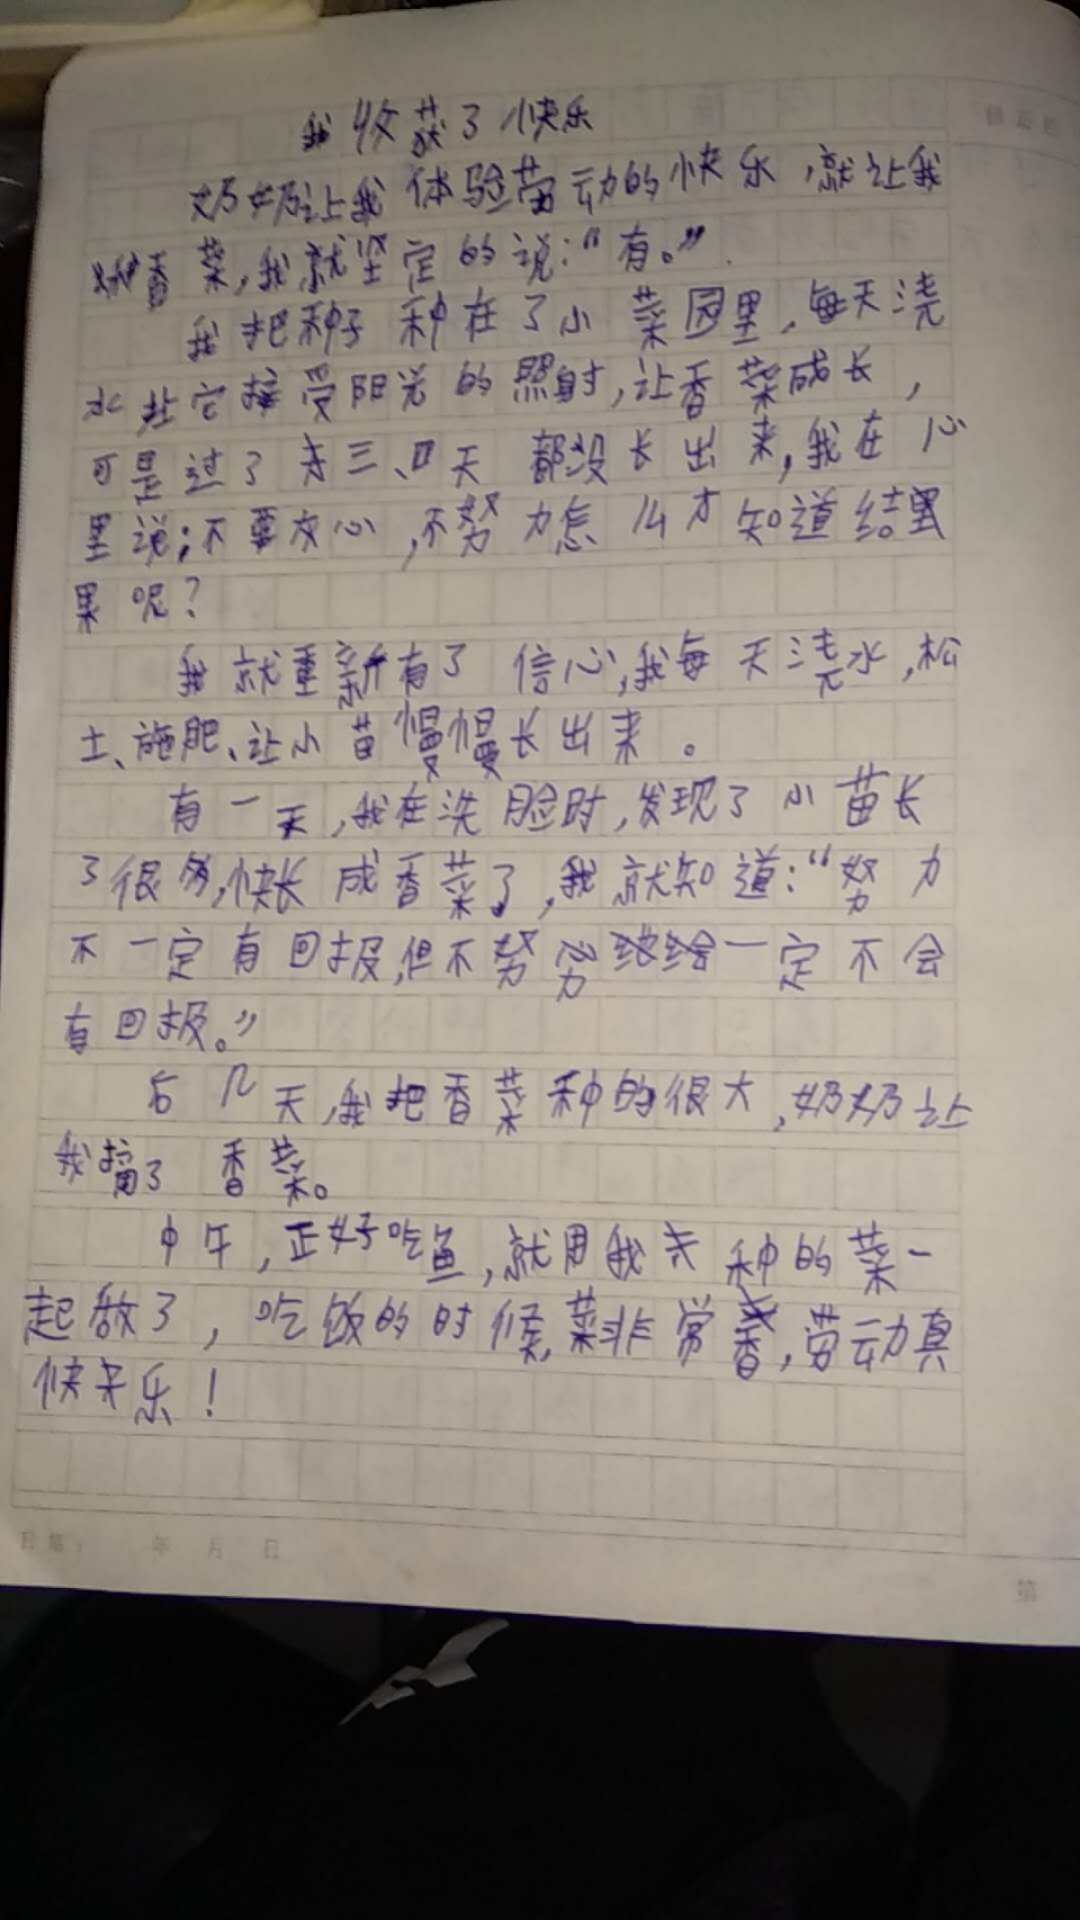 我收获了快乐
奶奶让我体验劳动的快乐,就让我
种香菜,我就坚定的说:“有。”
我把种子种在了小菜园里,每天浇
水让它接受阳光的照射,让香菜成长,
可是过了三、四天都没长出来,我在心
里说:不要灰心,不努力怎么才知道结
果呢?
我就重新有了信心,我每天浇水,松
土、施肥、让小苗慢慢长出来。
有一天,我在洗脸时,发现了小苗长
了很多,快长成香菜了,我就知道:“努力
不一定有回报,但不努力一定不会
有回报。”
后几天,我把香菜种的很大,奶奶让
我摘了香菜。
中午,正好吃鱼,就用我种的菜一
起做了,吃饭的时候,菜非常香,劳动真
快乐!
年 月 日
第